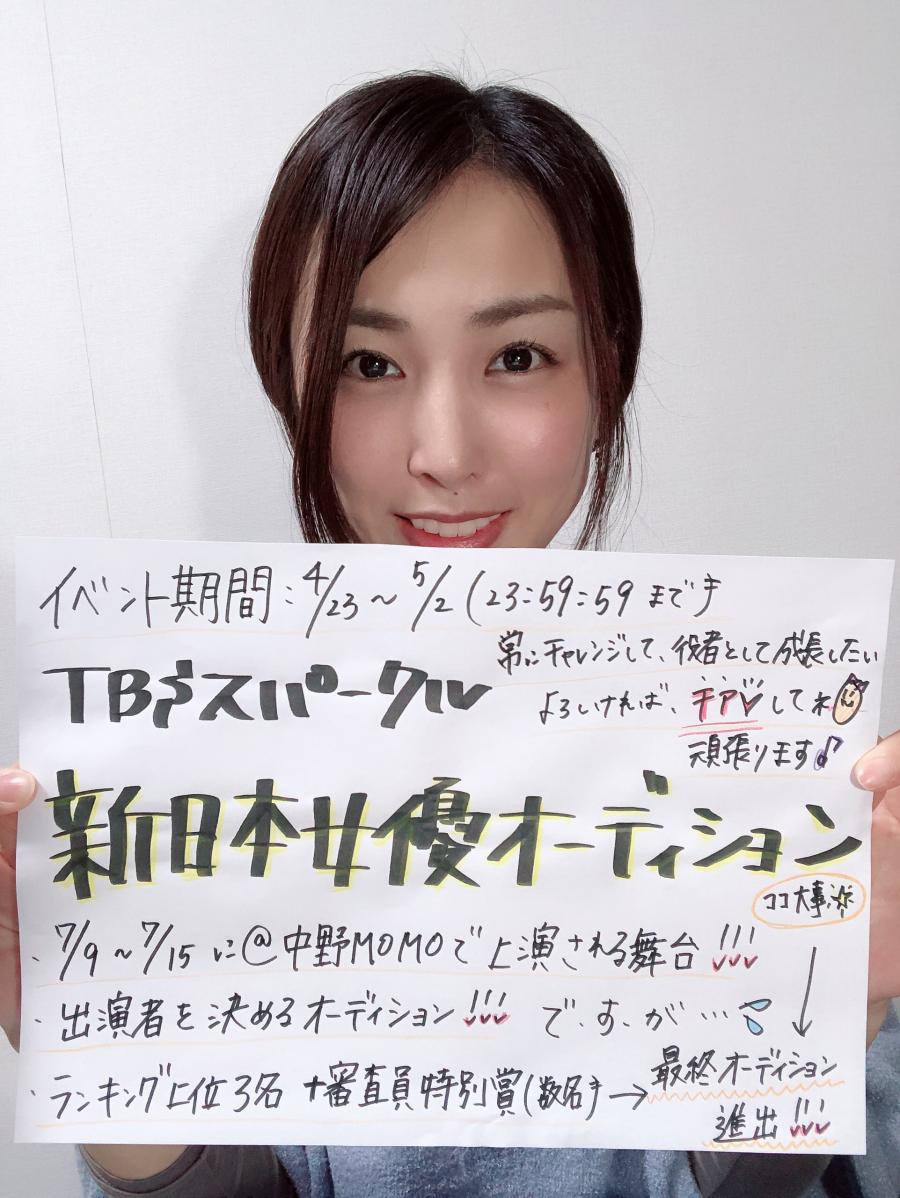 イベント期間:4/23~5/2(23:59:59まで)
常にチャレンジして、役者として成長したい
TBSスパークル
よろしければ、チアしてね
頑張ります♪
新日本女優オーディション
ココ大事
・7/9~7/15に@中野MOMOで上演される舞台!!!
・出演者を決めるオーディション!!! で.す.が…
・ランキング上位3名+審査員特別賞(数名)→最終オーディション
進出!!!